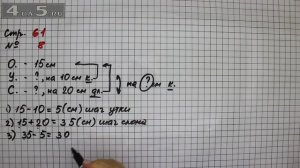 4FOX5.RU
Стр. 61
№ 8
О. - 15 см
У. - ?, на 10 см к.
С. - ?, на 20 см дл.
на ? см к.
1) 15 - 10 = 5 (см) шаг утки
2) 15 + 20 = 35 (см) шаг слона
3) 35 - 5 = 30